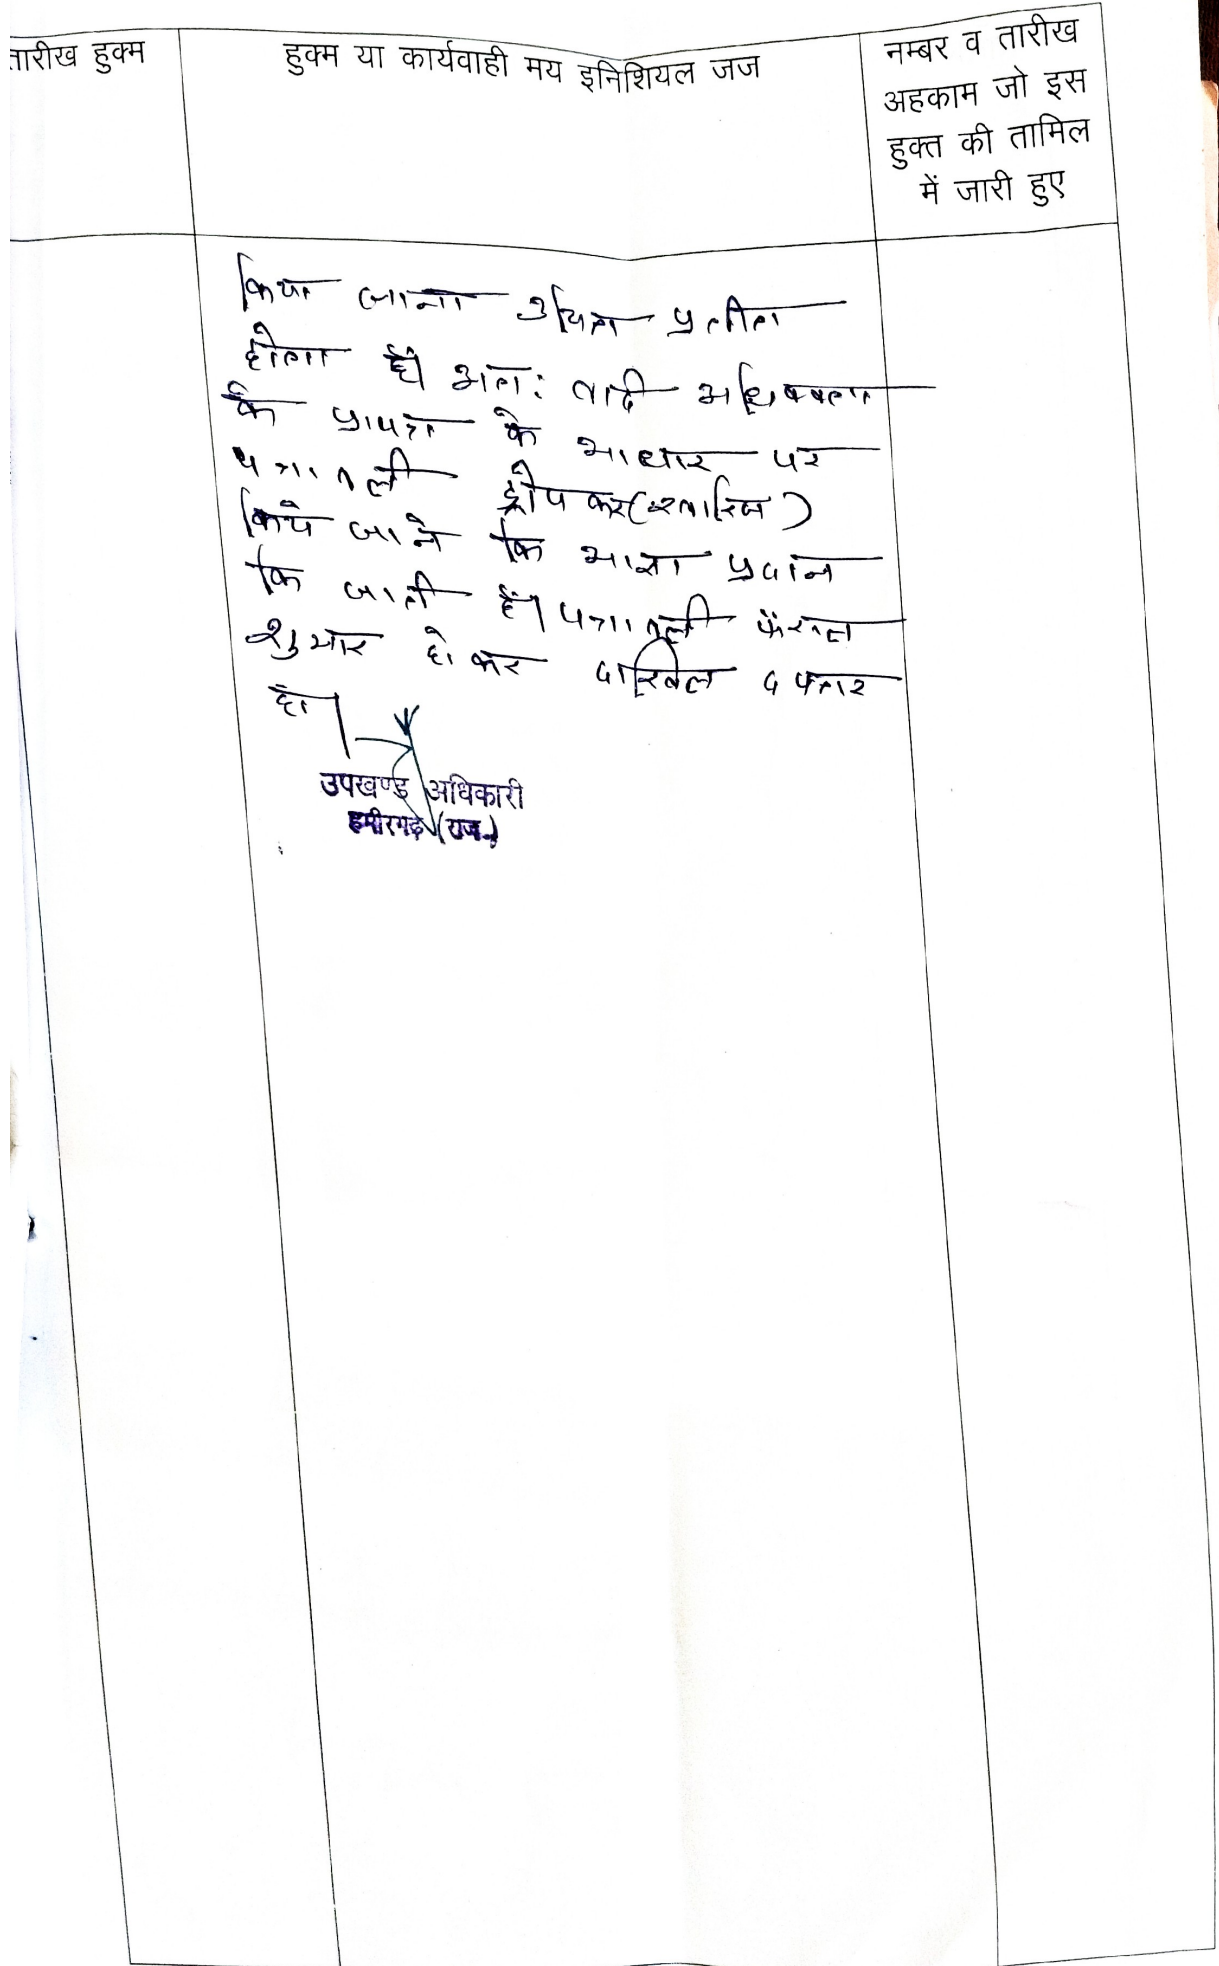 तारीख हुक्म
हुक्म या कार्यवाही मय इनिशियल जज
नम्बर व तारीख
अहकाम जो इस
हुक्त की तामिल
में जारी हुए
किया जाना उचित प्रतीत
होता है। अतः वादी अधिवक्ता
के प्रापत्र के आधार पर
पत्रावली ड्रोप कर (खारिज)
किये जाने कि आज्ञा प्रदान
कि जाती हैं। पत्रावली फैसल
शुमार होकर दाखिल दफ्तर
हो।
उपखण्ड अधिकारी
हमीरगढ़ (राज.)